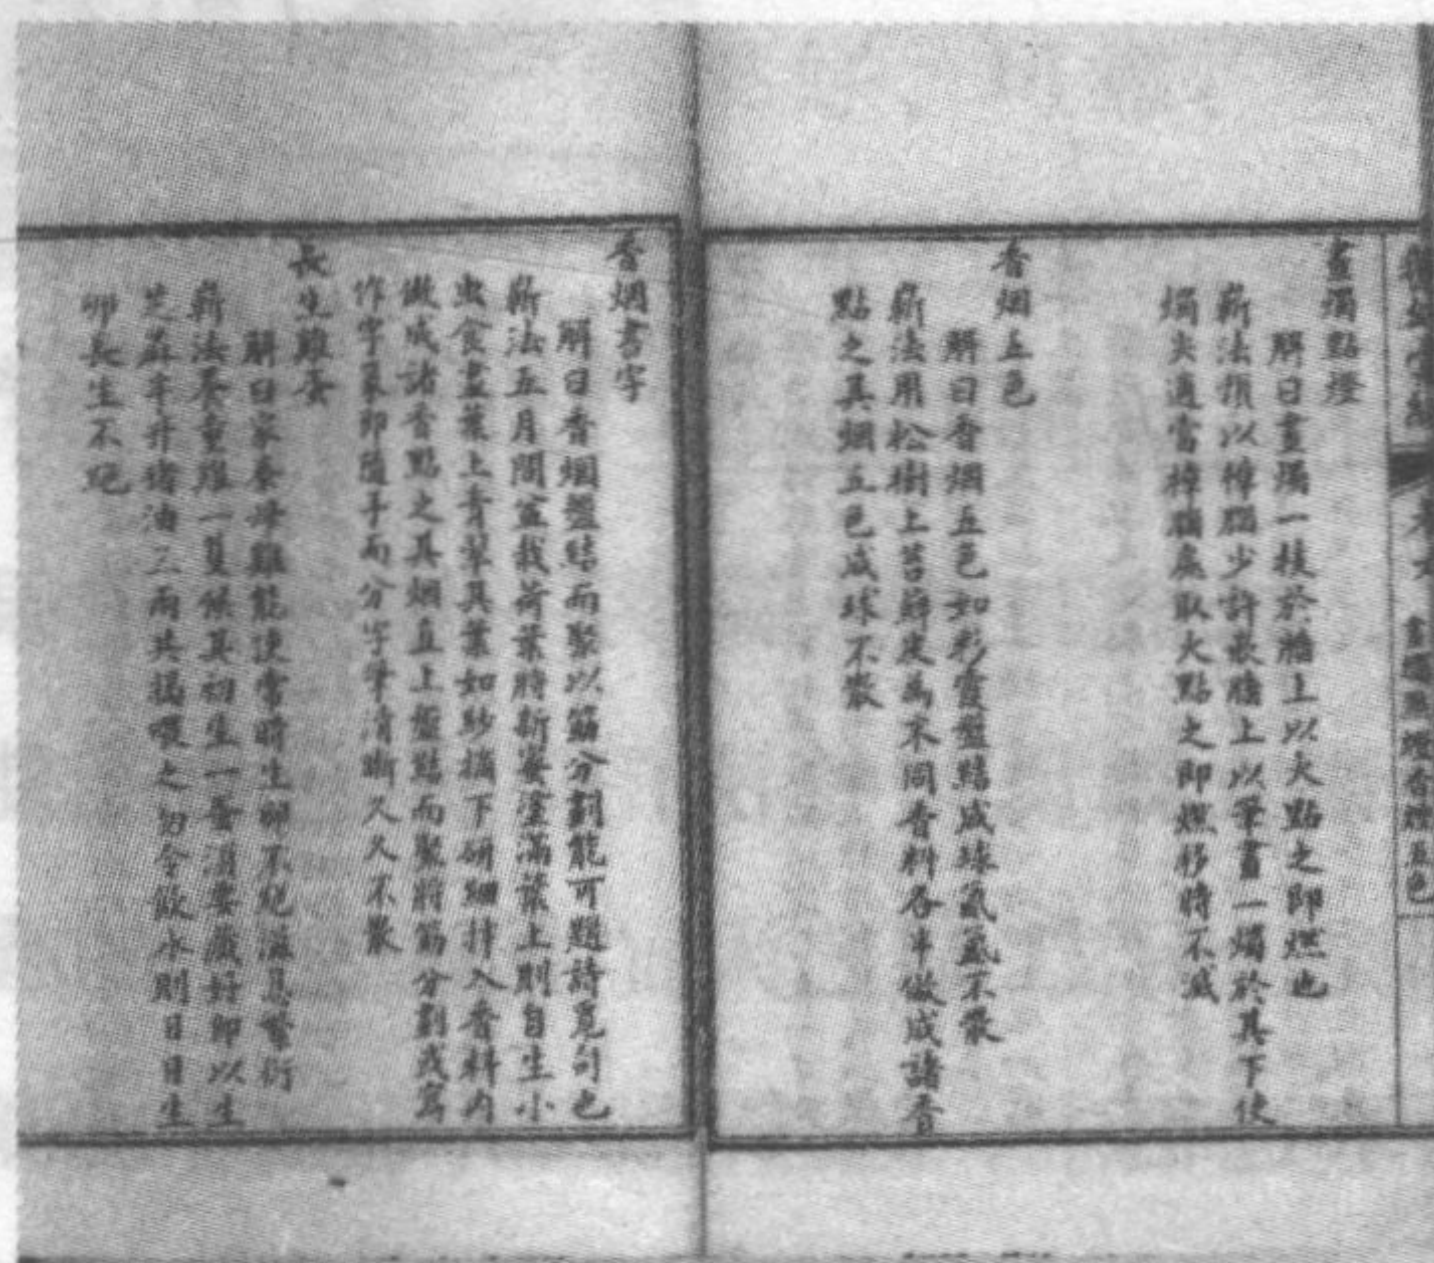 卷六　畫燭點燈香烟五色
畫燭點燈
解曰畫燭一枝於牆上以火點之即燃也
新法預以樟腦少許嵌牆上以筆畫一燭於其下使
燭尖適當樟腦處取火點之即燃移時不滅
香烟五色
解曰香烟五色如彩霞盤結成球氤氳不散
新法用松樹上苔蘚皮為末同香料各半做成諸香
點之其烟五色成球不散
香烟書字
解曰香烟盤結而聚以筯分劃能可題詩覓句也
新法五月間盆栽荷葉時新蜜塗滿葉上則自生小
虫食盡葉上青翠其葉如紗摘下研細拌入香料內
做成諸香點之其烟直上盤結而聚將筯分劃或寫
作字篆即隨手而分字筆清晰久久不散
長生雞蛋
解曰家養母雞能使常時生卵不絕滋息繁衍
新法養童雞一隻候其初生一蛋須要藏好即以生
芝蔴半升猪油三兩共搗喂之勿令飲水則日日生
卵長生不絕